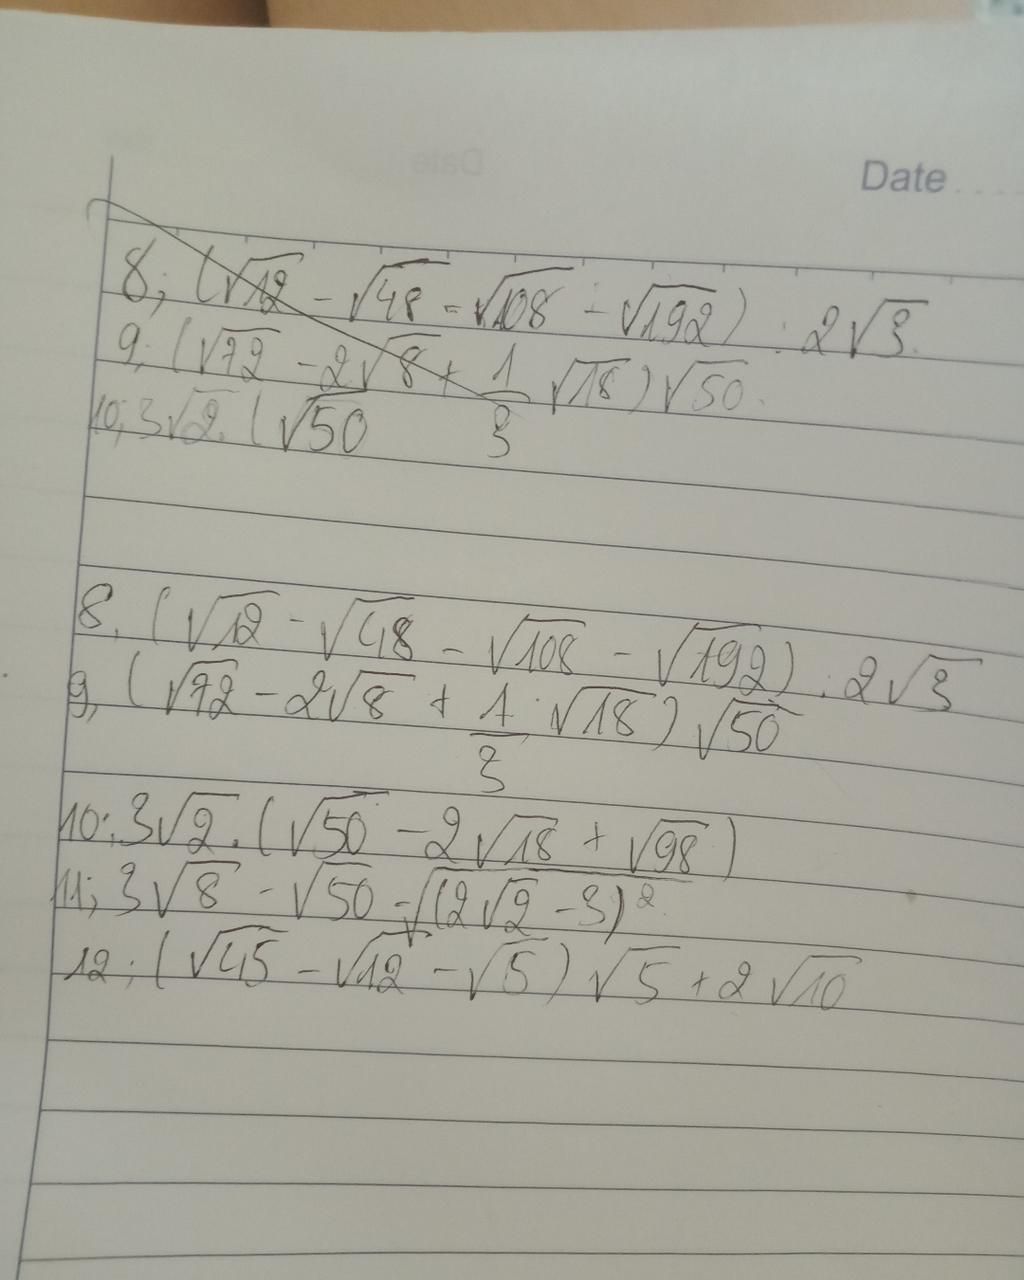 Date....
8; (√12 - √48 - √108 - √192) : 2√3.
9; (√72 - 2√8 + 1/3 √18)√50.
10; 3√2. (√50
8, (√12 - √48 - √108 - √192) : 2√3
9, (√72 - 2√8 + 1/3 . √18)√50
10; 3√2 . (√50 - 2√18 + √98)
11; 3√8 - √50 - √(2√2 - 3)²
12; (√45 - √12 - √5)√5 + 2√10